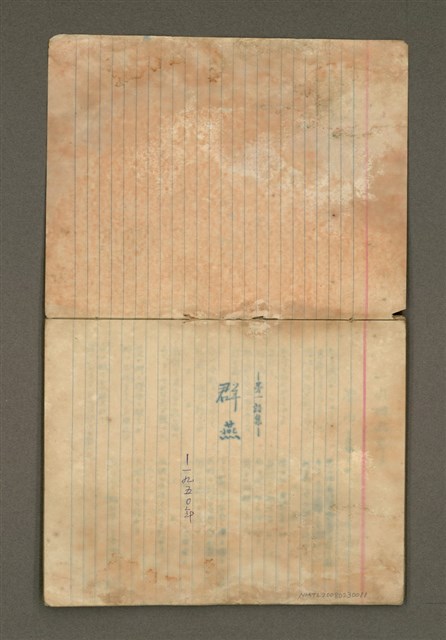 —第一詩集—
群燕
—一九五〇年